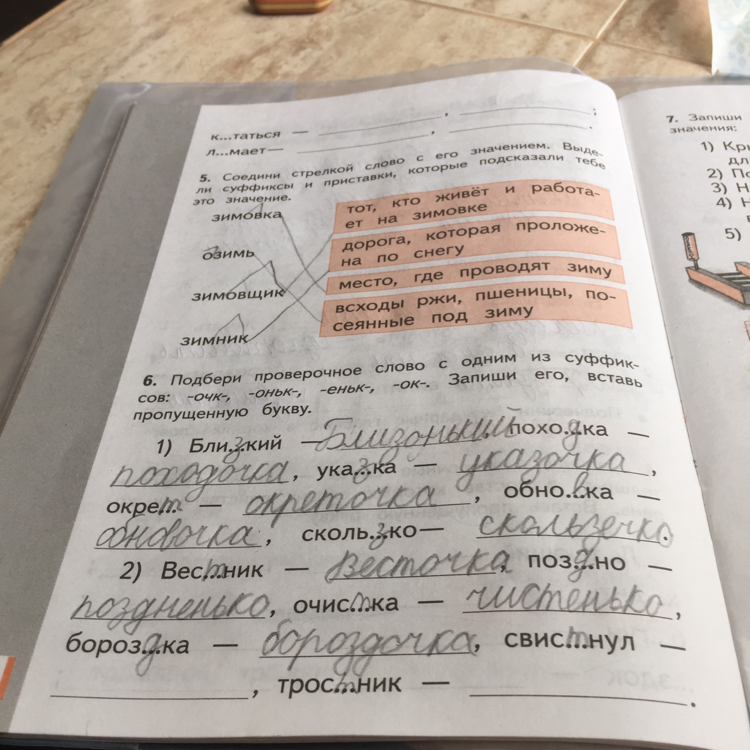 к...таться — , ;
л...мает — , .
5. Соедини стрелкой слово с его значением. Выде-
ли суффиксы и приставки, которые подсказали тебе
это значение.
зимовка
озимь
зимовщик
зимник
тот, кто живёт и работа-
ет на зимовке
дорога, которая проложе-
на по снегу
место, где проводят зиму
всходы ржи, пшеницы, по-
сеянные под зиму
6. Подбери проверочное слово с одним из суффик-
сов: -очк-, -оньк-, -еньк-, -ок-. Запиши его, вставь
пропущенную букву.
1) Бли.з.кий — Близонький, похо.д.ка —
походочка, ука.з.ка — указочка,
окре.т. — окреточка, обно.в.ка —
обновочка, сколь.з.ко — скользечко.
2) Вес.т.ник — Весточка, поз.д.но —
поздненько, очис.т.ка — чистенько,
бороз.д.ка — бороздочка, свис.т.нул —
, трос.т.ник — .
7. Запиши
значения:
1)
2)
3)
4)
5)